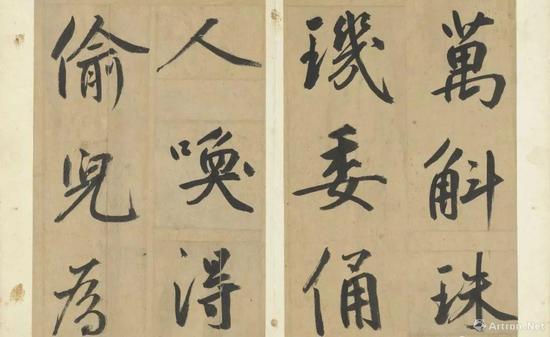 萬斛珠
璣委俑
人喚得
偷兒為
Artron.Net